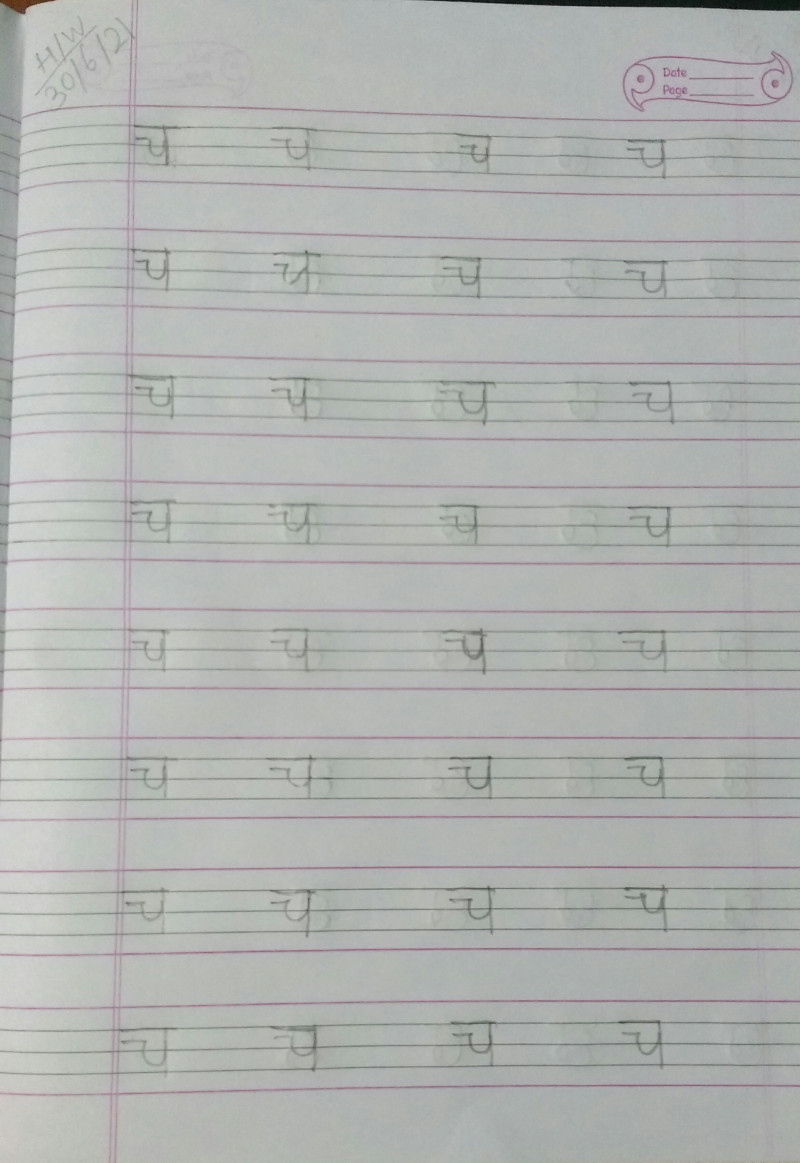 H/W
30/6/21
Date
Page
च च च च
च च च च
च च च च
च च च च
च च च च
च च च च
च च च च
च च च च